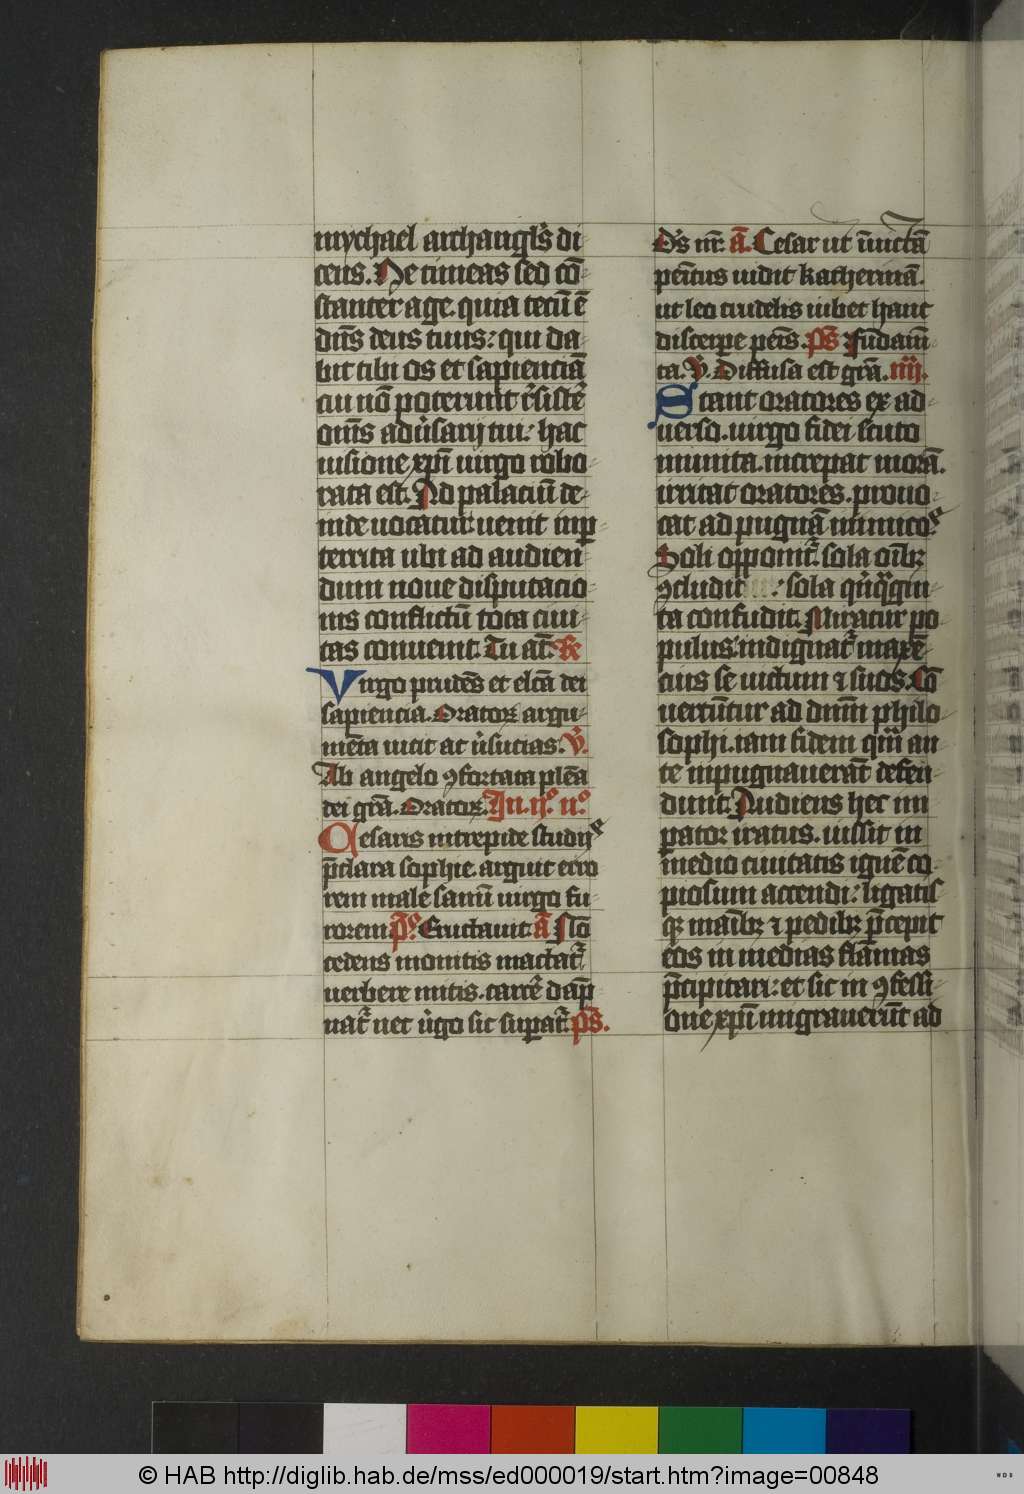 mychael archangl's di-
cens. Ne timeas sed cō-
stanter age. quia tecū ē
dn̄s deus tuus: qui da-
bit tibi os et sapienciā
cui nō poterunt r̄sistē
om̄s adu̓sarij tui: hac
uisione xp̄i uirgo robo-
rata est. Ad palaciū de-
inde uocatur uenit inp̱-
territa ubi ad audien-
dum noue disputacio-
nis conflictū tota ciui-
tas conuenit. Tu aūt. R̄e
Virgo prudēs et elc̄a dei
sapiencia. Oratorꝝ argu-
mēta uicit ac u̓sucias. V̓.
Ab angelo ꝯfortata plēa
dei grā. Oratorꝝ. In. ijº. nº
Cesaris intrepide studijs
p̄clara sophie. arguit erro
rem male sanū uirgo fu-
rorem. p̄s̄. Eructauit. ā Nō
cedens monitis mactat̓
uerbere mitis. carcē dāp
nat̓ nec u̓go sic suꝑat̓. p̄s̄.
Dn̄s nr̄. ā. Cesar ut inuictā
penitus uidit katherinā.
ut leo crudelis iubet hanc
discerpe penis. p̄s̄ Fūdam̄
ta. V̓. Diffusa est grā. iiij.
Stant oratores ex ad
uerso. uirgo fidei scuto
munita. increpat morā.
irritat oratores. prouo-
cat ad pugnā inimicos.
Soli opponit̓. sola oīb;
ꝯcludit: sola qn̓q̄gin-
ta confudit. Miratur po
pulus. indignat̓ maxē-
cius se uictum ⁊ suos. Cō
uertūtur ad dnm̄ philo-
sophi. iam fidem qm̄ an
te inpugnauerāt defen-
dunt. Audiens hec im
ꝑator iratus. iussit in
medio ciuitatis ignē co-
piosum accendi: ligatis
q; manib; ⁊ pedib; p̄cepit
eos in medias flāmas
p̄cipitari: et sic in ꝯfessi-
one xp̄i migrauerūt ad
© HAB http://diglib.hab.de/mss/ed000019/start.htm?image=00848